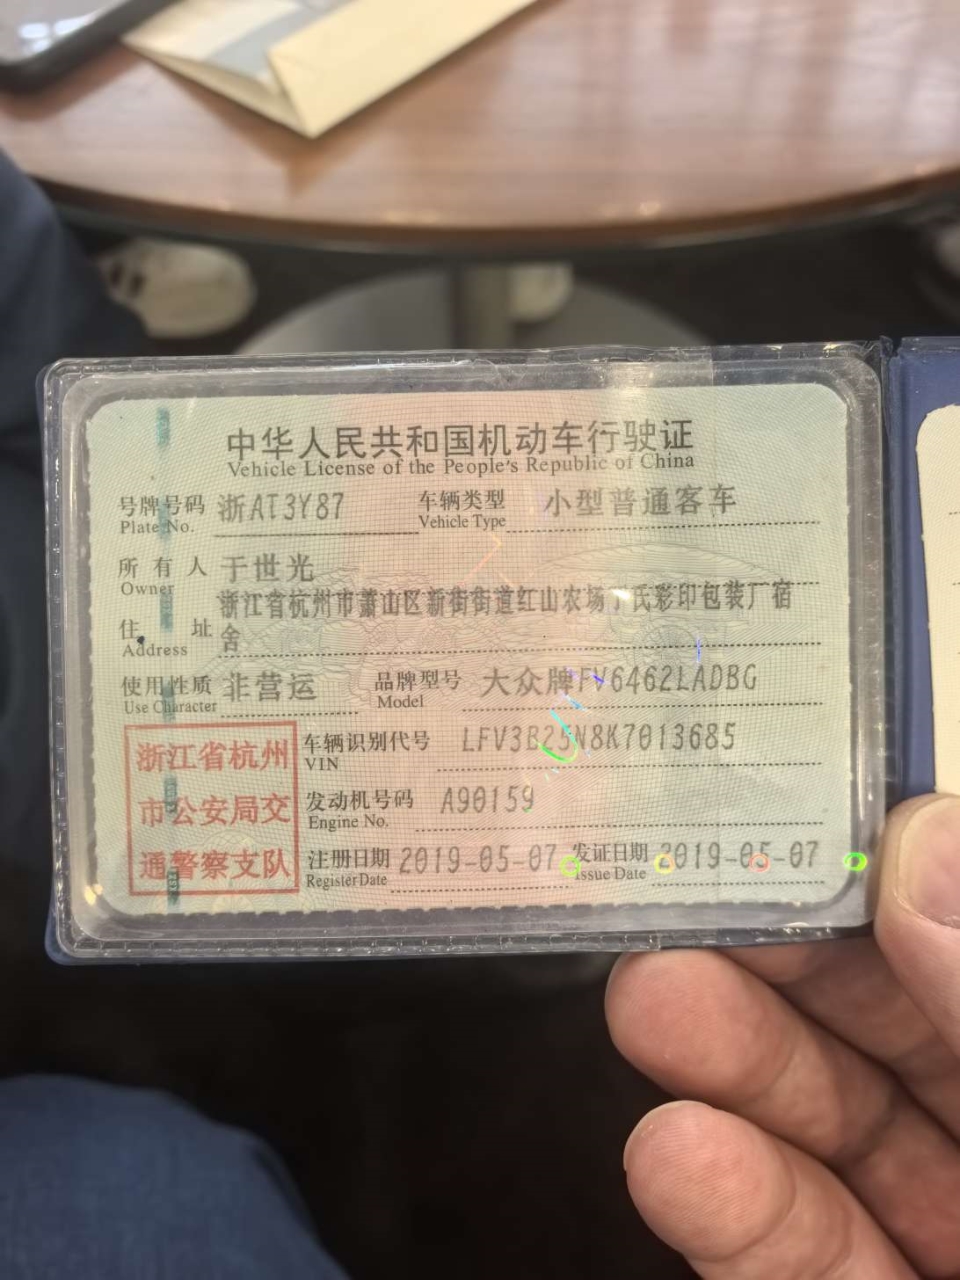 中华人民共和国机动车行驶证
Vehicle License of the People's Republic of China
号牌号码 浙AT3Y87 车辆类型 小型普通客车
Plate No. Vehicle Type
所有人 于世光
Owner
浙江省杭州市萧山区新街街道红山农场于氏彩印包装厂宿
住址 舍
Address
使用性质 非营运 品牌型号 大众牌FV6462LADBG
Use Character Model
浙江省杭州
市公安局交
通警察支队
车辆识别代号 LFV3B25N8K7013685
VIN
发动机号码 A90159
Engine No.
注册日期 2019-05-07 发证日期 2019-05-07
Register Date Issue Date